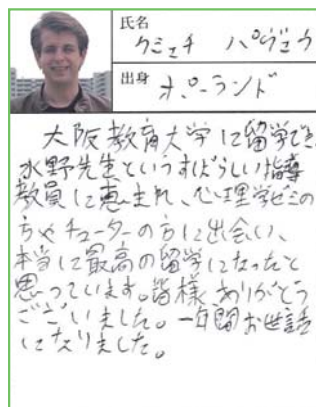 氏名
クミェチ パヴェウ
出身
ポーランド
大阪教育大学に留学でき、
水野先生というすばらしい指導
教員に恵まれ、心理学ゼミの
方やチューターの方に出会い、
本当に最高の留学になったと
思っています。皆様、ありがとう
ございました。一年間お世話
になりました。